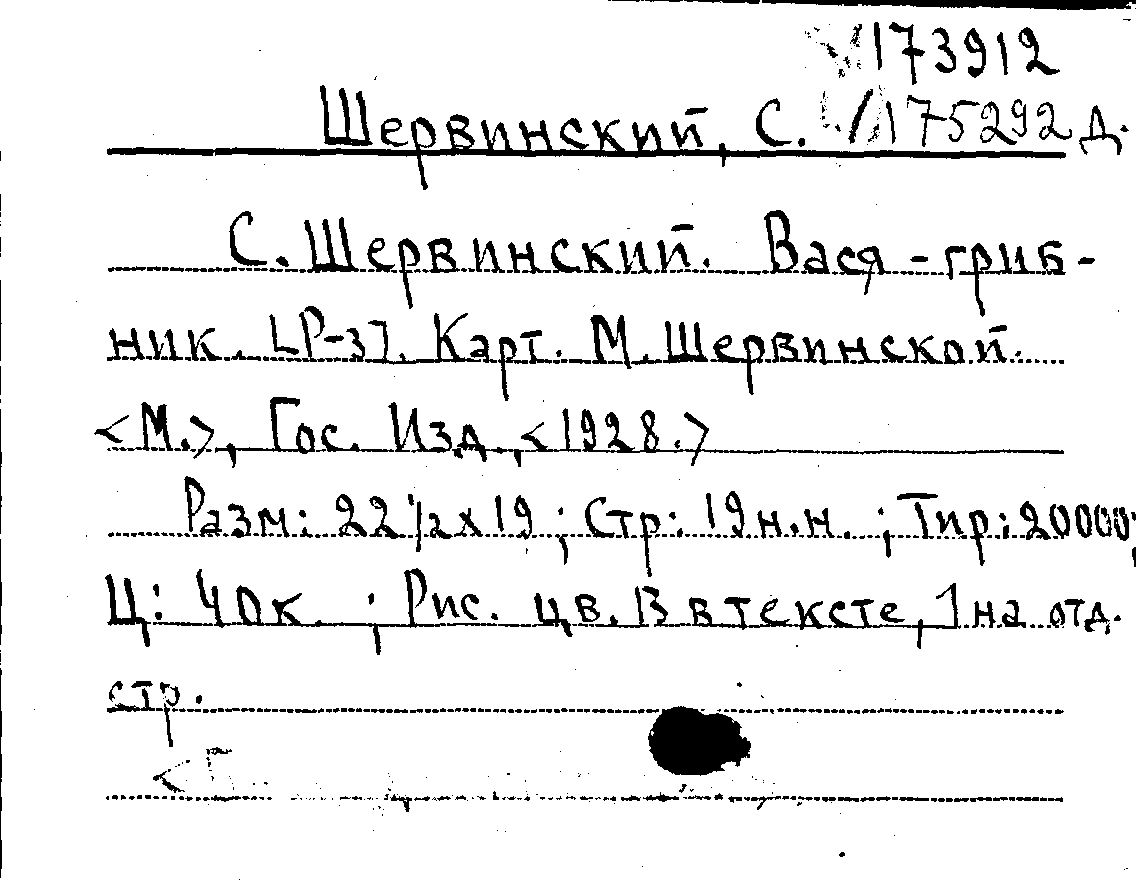 173912
Шервинский, С. 175292 Д.
С. Шервинский. Вася-гриб-
ник. [Р-з]. Карт. М. Шервинской.
<М.>, Гос. Изд., <1928.>
Разм: 22 1/2 х 19 ; Стр: 19 н.н. ; Тир: 20000;
Ц: 40к. ; Рис. цв. 13 в тексте, 1 на отд.
стр.